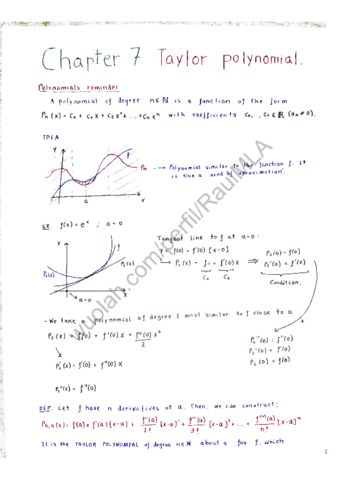 Chapter 7 Taylor polynomial.
Polynomials reminder
A polynomial of degree n∈ℕ is a function of the form
Pₙ(x) = C₀ + C₁x + C₂x² + ... + Cₙxⁿ with coefficients C₀, , Cₙ∈ℝ (aₙ≠0).
IDEA
y
f
Pₙ → Polynomial similar to the function f. It
is like a kind of "aproximation".
a
x
EX f(x) = eˣ ; a = 0
Tangent line to f at a=0:
y = f(0) + f'(0) [x-0]
P₁(x) = f(0) + f'(0)x ⟹
C₀ C₁
P₁(0) = f(0)
P₁'(0) = f'(0)
Condition.
y
f
P₂(x)
P₁(x)
x
a=0
- We take a polynomial of degree 2 most similar to f close to a
P₂(x) = f(0) + f'(0)x + f''(0)/2 x²
P₂'(x) = f'(0) + f''(0)x
P₂''(x) = f''(0)
P₂''(0) = f''(0)
P₂'(0) = f'(0)
P₂(0) = f(0)
DEF. Let f have n derivatives at a. Then, we can construct:
Pₙ,ₐ(x) = f(a) + f'(a)[x-a] + f''(a)/2! [x-a]² + f'''(a)/3! [x-a]³ + ... + f⁽ⁿ⁾(a)/n! [x-a]ⁿ
It is the TAYLOR POLYNOMIAL of degree n∈ℕ about a for f, which
wuolah.com/perfil/RaulMLA